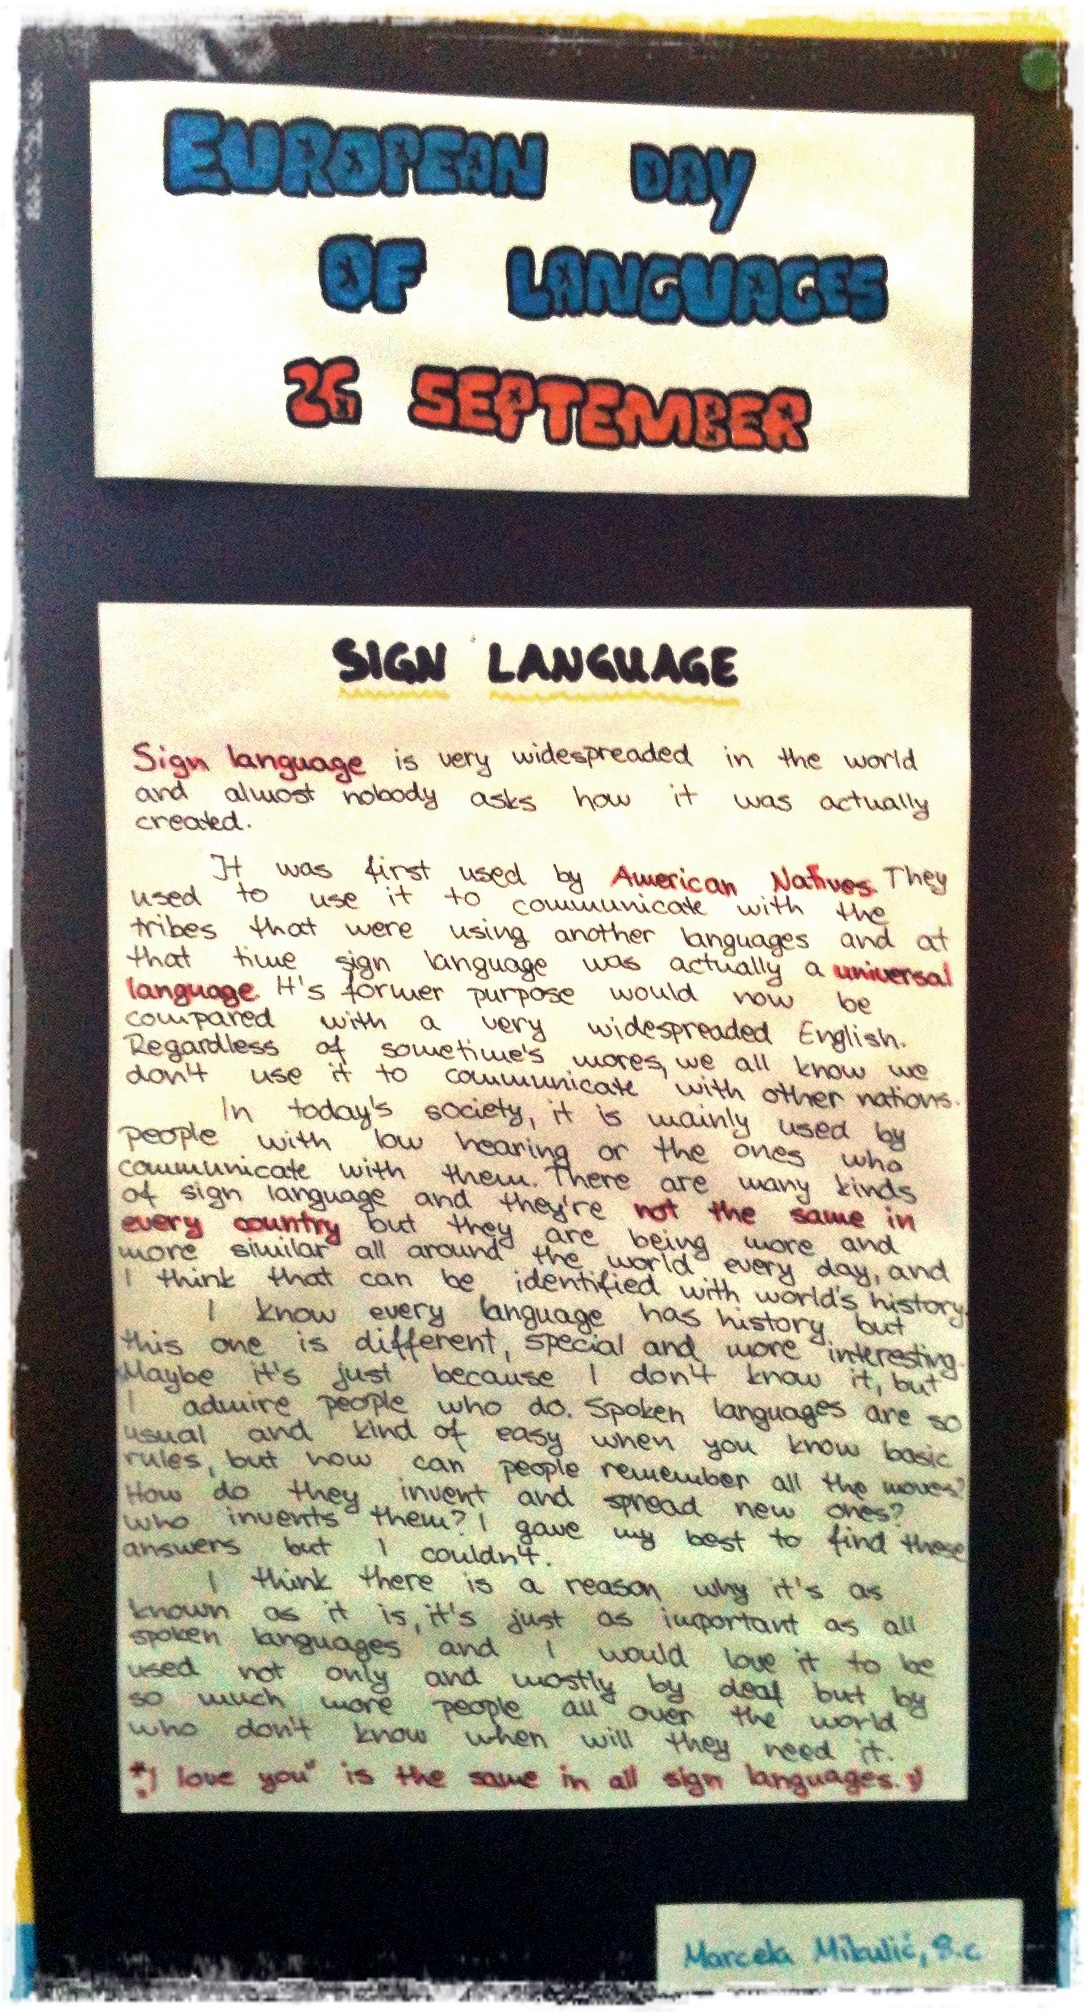 EUROPEAN DAY
OF LANGUAGES
26 SEPTEMBER
SIGN LANGUAGE
Sign language is very widespreaded in the world
and almost nobody asks how it was actually
created.
It was first used by American Natives. They
used to use it to communicate with the
tribes that were using another languages and at
that time sign language was actually a universal
language. It's former purpose would now be
compared with a very widespreaded English.
Regardless of sometime's mores, we all know we
don't use it to communicate with other nations.
In today's society, it is mainly used by
people with low hearing or the ones who
communicate with them. There are many kinds
of sign language and they're not the same in
every country but they are being more and
more similar all around the world every day, and
I think that can be identified with world's history.
I know every language has history but
this one is different, special and more interesting.
Maybe it's just because I don't know it, but
I admire people who do. Spoken languages are so
usual and kind of easy when you know basic
rules, but how can people remember all the moves?
How do they invent and spread new ones?
who invents them? I gave my best to find these
answers but I couldn't.
I think there is a reason why it's as
known as it is, it's just as important as all
spoken languages and I would love it to be
used not only and mostly by deaf but by
so much more people all over the world
who don't know when will they need it.
*"I love you" is the same in all sign languages. :)
Marcela Mikulić, 8.c